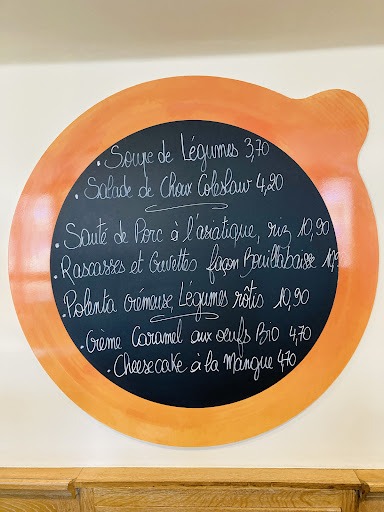 • Soupe de Légumes 3,70
• Salade de Choux Coleslaw 4,20
• Sauté de Porc à l'asiatique, riz 10,90
• Rascasses et Gavettes façon Bouillabaisse 10,9
• Polenta crémeuse, Légumes rôtis 10,90
• Crème Caramel aux oeufs Bio 4,70
• Cheesecake à la Mangue 4,70